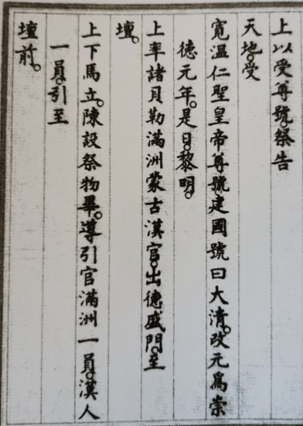 上以受尊號祭告
天地。受
寬溫仁聖皇帝尊號。建國號曰大清。改元爲崇
德元年。是日。黎明。
上率諸貝勒滿洲蒙古漢官。出德盛門。至
壇。
上下馬立。陳設祭物畢。導引官滿洲一員。漢人
一員。引至
壇前。